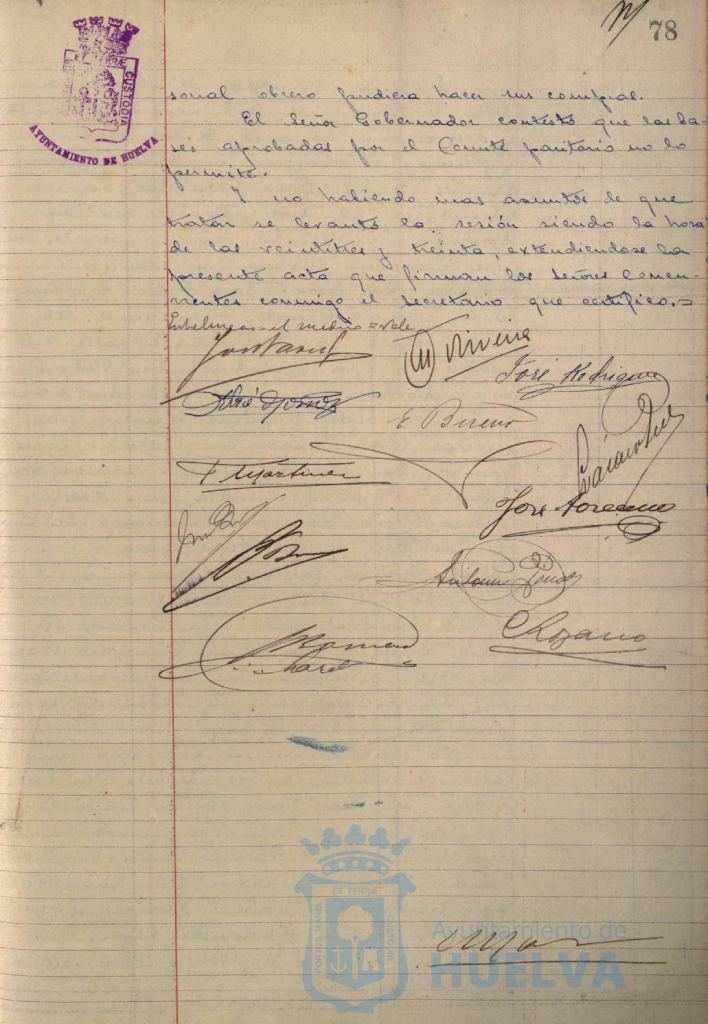 78
CUSTODIA
AYUNTAMIENTO DE HUELVA
sonal obrero pudiera hacer sus compras.
El Señor Gobernador contestó que las ba-
ses aprobadas por el Comité paritario no lo
permite.
Y no habiendo mas asuntos de que
tratar se levantó la sesión siendo la hora
de las veintitres y treinta, extendiendose la
presente acta que firman los señores concu-
rrentes conmigo el Secretario que certifico.=
Entrelineas = el medio = Vale
José Rodriguez
E Bueno
F Martinez
José
Antonio
Romero
C Lozano
PORTUS MARIS ET TERRAE CUSTODIA
Ayuntamiento de
HUELVA